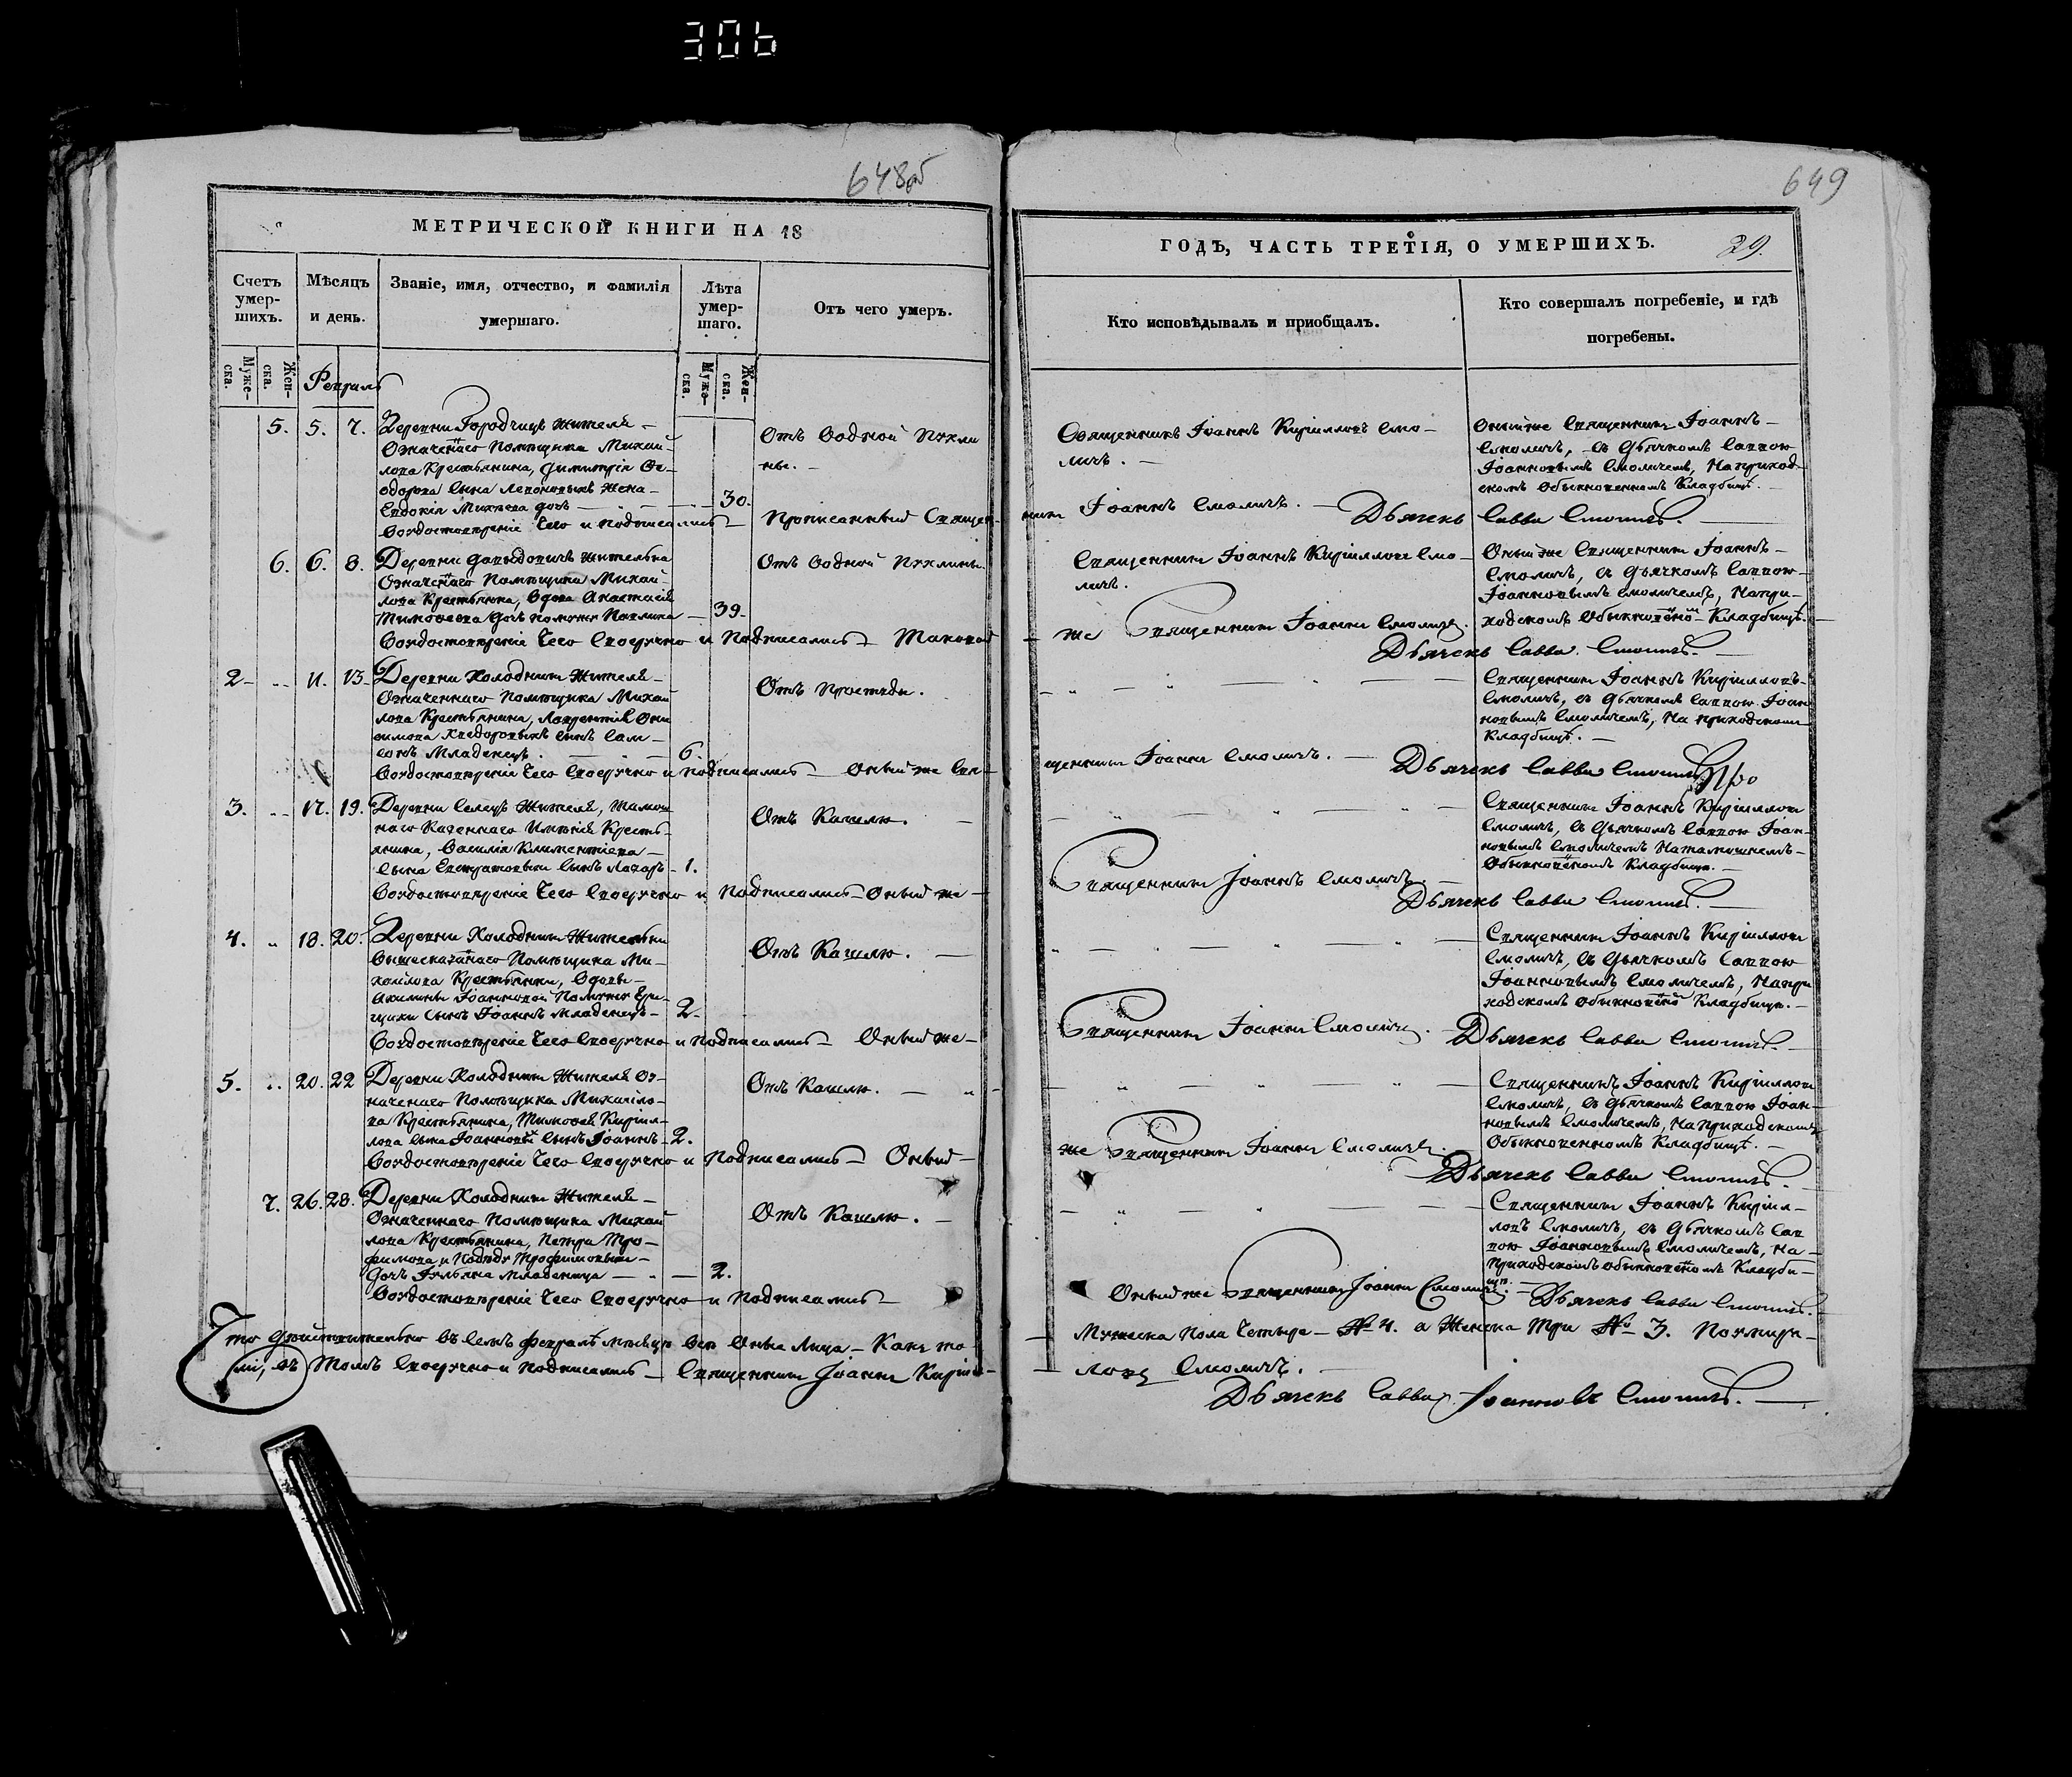 306
648об
649
МЕТРИЧЕСКОЙ КНИГИ НА 18
ГОДЪ, ЧАСТЬ ТРЕТІЯ, О УМЕРШИХЪ.
29.
Счетъ умер-шихъ.
Мѣсяцъ и день.
Званіе, имя, отчество, и фамилія умершаго.
Лѣта умер-шаго.
Отъ чего умеръ.
Кто исповѣдывалъ и приобщалъ.
Кто совершалъ погребеніе, и гдѣ погребены.
Муже-ска.
Жен-ска.
Муже-ска.
Жен-ска.
Февраль
5. 5. 7.
Деревни Городчицъ жителя
Означеннаго Помѣщика Михай-
лова Крестьянина, Димитрія
сына жена
Евдокія дочь
30.
Отъ Водной Пухли
ны.
Священникъ Іоаннъ Кирилловъ Смо-
личъ.
Оный же Священникъ Іоаннъ
Смоличъ, съ Дьячкомъ Саввою
Іоанновымъ Смоличемъ, На приход-
скомъ Обыкновенномъ Кладбищѣ.
Воудостовѣреніе Чего и подписались
Прописанный Священ-
никъ Іоаннъ Смоличъ.
Дьячекъ Савва Смоличъ.
6. 6. 8.
Деревни жителька
Означеннаго Помѣщика Михай-
лова Крестьянка, Вдова Анастасія
Тимофеева Дочь
39.
Отъ Водной Пухлины
Священникъ Іоаннъ Кирилловъ Смо-
личъ.
Оный же Священникъ Іоаннъ
Смоличъ, съ Дьячкомъ Саввою
Іоанновымъ Смоличемъ, На при-
ходскомъ Обыкновено Кладбищѣ.
Воудостовѣреніе Чего Своеручно и Подписались Таковой
же Священникъ Іоаннъ Смоличъ.
Дьячекъ Савва Смоличъ.
2. 11. 13.
Деревни Холодникъ Жителя
Означеннаго Помѣщика Михай
лова Крестьянина, Лаврентія Они
симова сынъ Сам-
сонъ Младенецъ.
6.
Отъ Простуды.
Священникъ Іоаннъ Кирилловъ
Смоличъ, съ Дьячкомъ Саввою Іоан
новымъ Смоличемъ, На приходскомъ
Кладбищѣ.
Воудостовѣреніе Чего Своеручно и подписались Оный же Свя-
щенникъ Іоаннъ Смоличъ.
Дьячекъ Савва Смоличъ
3. 17. 19.
Деревни Селецъ Жителя,
наго Казеннаго Имѣнія Кресть-
янина, Василія Климентіева
Сына сынъ Лазарь
1.
Отъ Кашлю.
Священникъ Іоаннъ Кирилловъ
Смоличъ, съ Дьячкомъ Саввою Іоан-
новымъ Смоличемъ На тамошнемъ
Обыкновеномъ Кладбищѣ.
Воудостовѣреніе Чего Своеручно и Подписались Оный же
Священникъ Іоаннъ Смоличъ.
Дьячекъ Савва Смоличъ.
4. 18. 20.
Деревни Холодникъ Жительки
Вышесказанаго Помѣщика Ми-
хайлова Крестьянки, Вдовы
Акилины Іоанновой
сынъ Іоаннъ Младенецъ
2.
Отъ Кашлю.
Священникъ Іоаннъ Кирилловъ
Смоличъ, съ Дьячкомъ Саввою
Іоанновымъ Смоличемъ, На при
ходскомъ обыкновено Кладбищѣ.
Воудостовѣреніе Чего Своеручно и подписались Оный же
Священникъ Іоаннъ Смоличъ.
Дьячекъ Савва Смоличъ.
5. 20. 22
Деревни Холодникъ Жителя Оз-
наченаго Помѣщика Михайло-
ва Крестьянина, Тимофея Кирил-
лова сына сынъ Іоаннъ
2.
Отъ Кашлю.
Священникъ Іоаннъ Кирилловъ
Смоличъ, съ Дьячкомъ Саввою Іоан-
новымъ Смоличемъ, На приходскомъ
Обыкновенномъ Кладбищѣ.
Воудостовѣреніе Чего Своеручно и Подписались Оный
же Священникъ Іоаннъ Смоличъ.
Дьячекъ Савва Смоличъ.
7. 26. 28.
Деревни Холодникъ Жителя
Означеннаго Помѣщика Михай
лова Крестьянина, Петра Тро-
фимова
Дочь Іульяна Младеница
2.
Отъ Кашлю.
Священникъ Іоаннъ Кирил-
ловъ Смоличъ, съ Дьячкомъ Сав
вою Іоанновымъ Смоличемъ, На
приходскомъ обыкновеномъ Кладби-
щѣ.
Воудостовѣреніе Чего Своеручно и Подписались
Оный же Священникъ Іоаннъ Смоличъ.
Дьячекъ Савва Смоличъ.
Что дѣйствительно въ семъ Февралѣ мѣсяцѣ Оныя Лица
Мужеска Пола Четыре № 4. а Женска Три № 3.
въ Томъ Своеручно и подписались Священникъ Іоаннъ Кирил-
ловъ Смоличъ.
Дьячекъ Савва Іоанновъ Смоличъ.